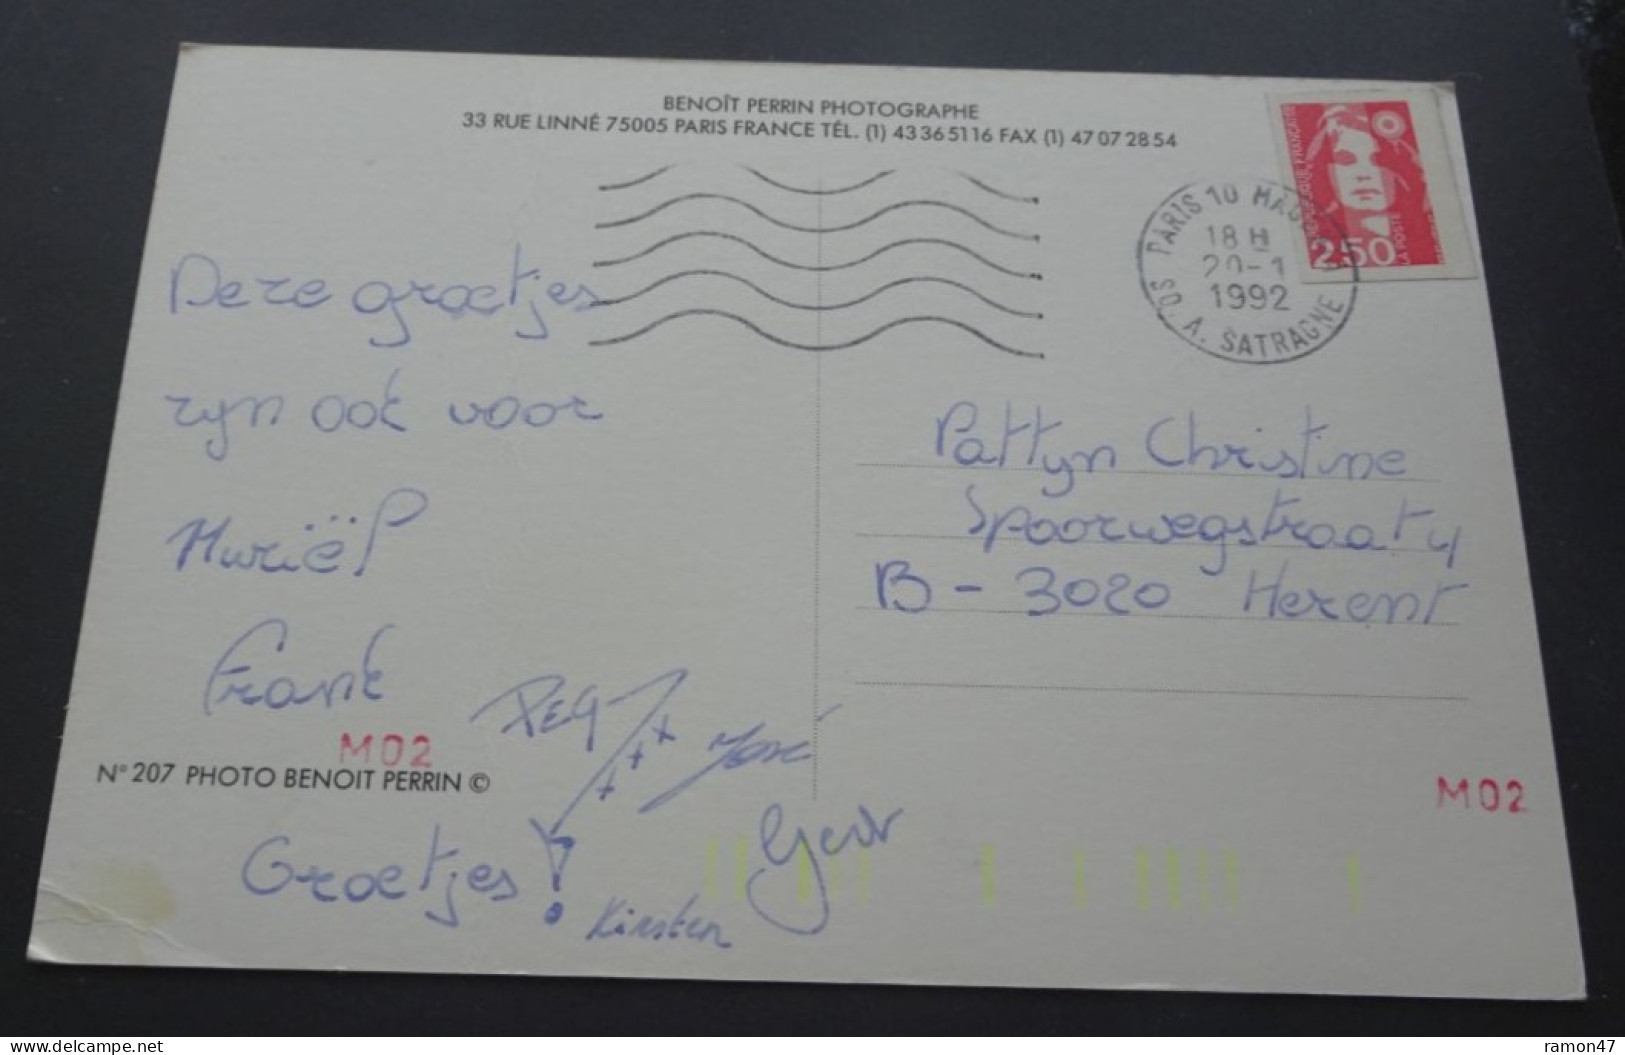 BENOÎT PERRIN PHOTOGRAPHE
33 RUE LINNÉ 75005 PARIS FRANCE TÉL. (1) 43 36 51 16 FAX (1) 47 07 28 54
REPUBLIQUE FRANÇAISE
2,50
LA POSTE
PARIS 10
18 H
20-1
1992
A. SATRAGNE
Deze groetjes
zijn ook voor
Muriël
Frank
PEG
José
M02
N° 207 PHOTO BENOIT PERRIN ©
Groetjes!
Gert
Kirsten
Pattyn Christine
Spoorwegstraat 4
B - 3020 Herent
M02
delcampe.net
ramon47